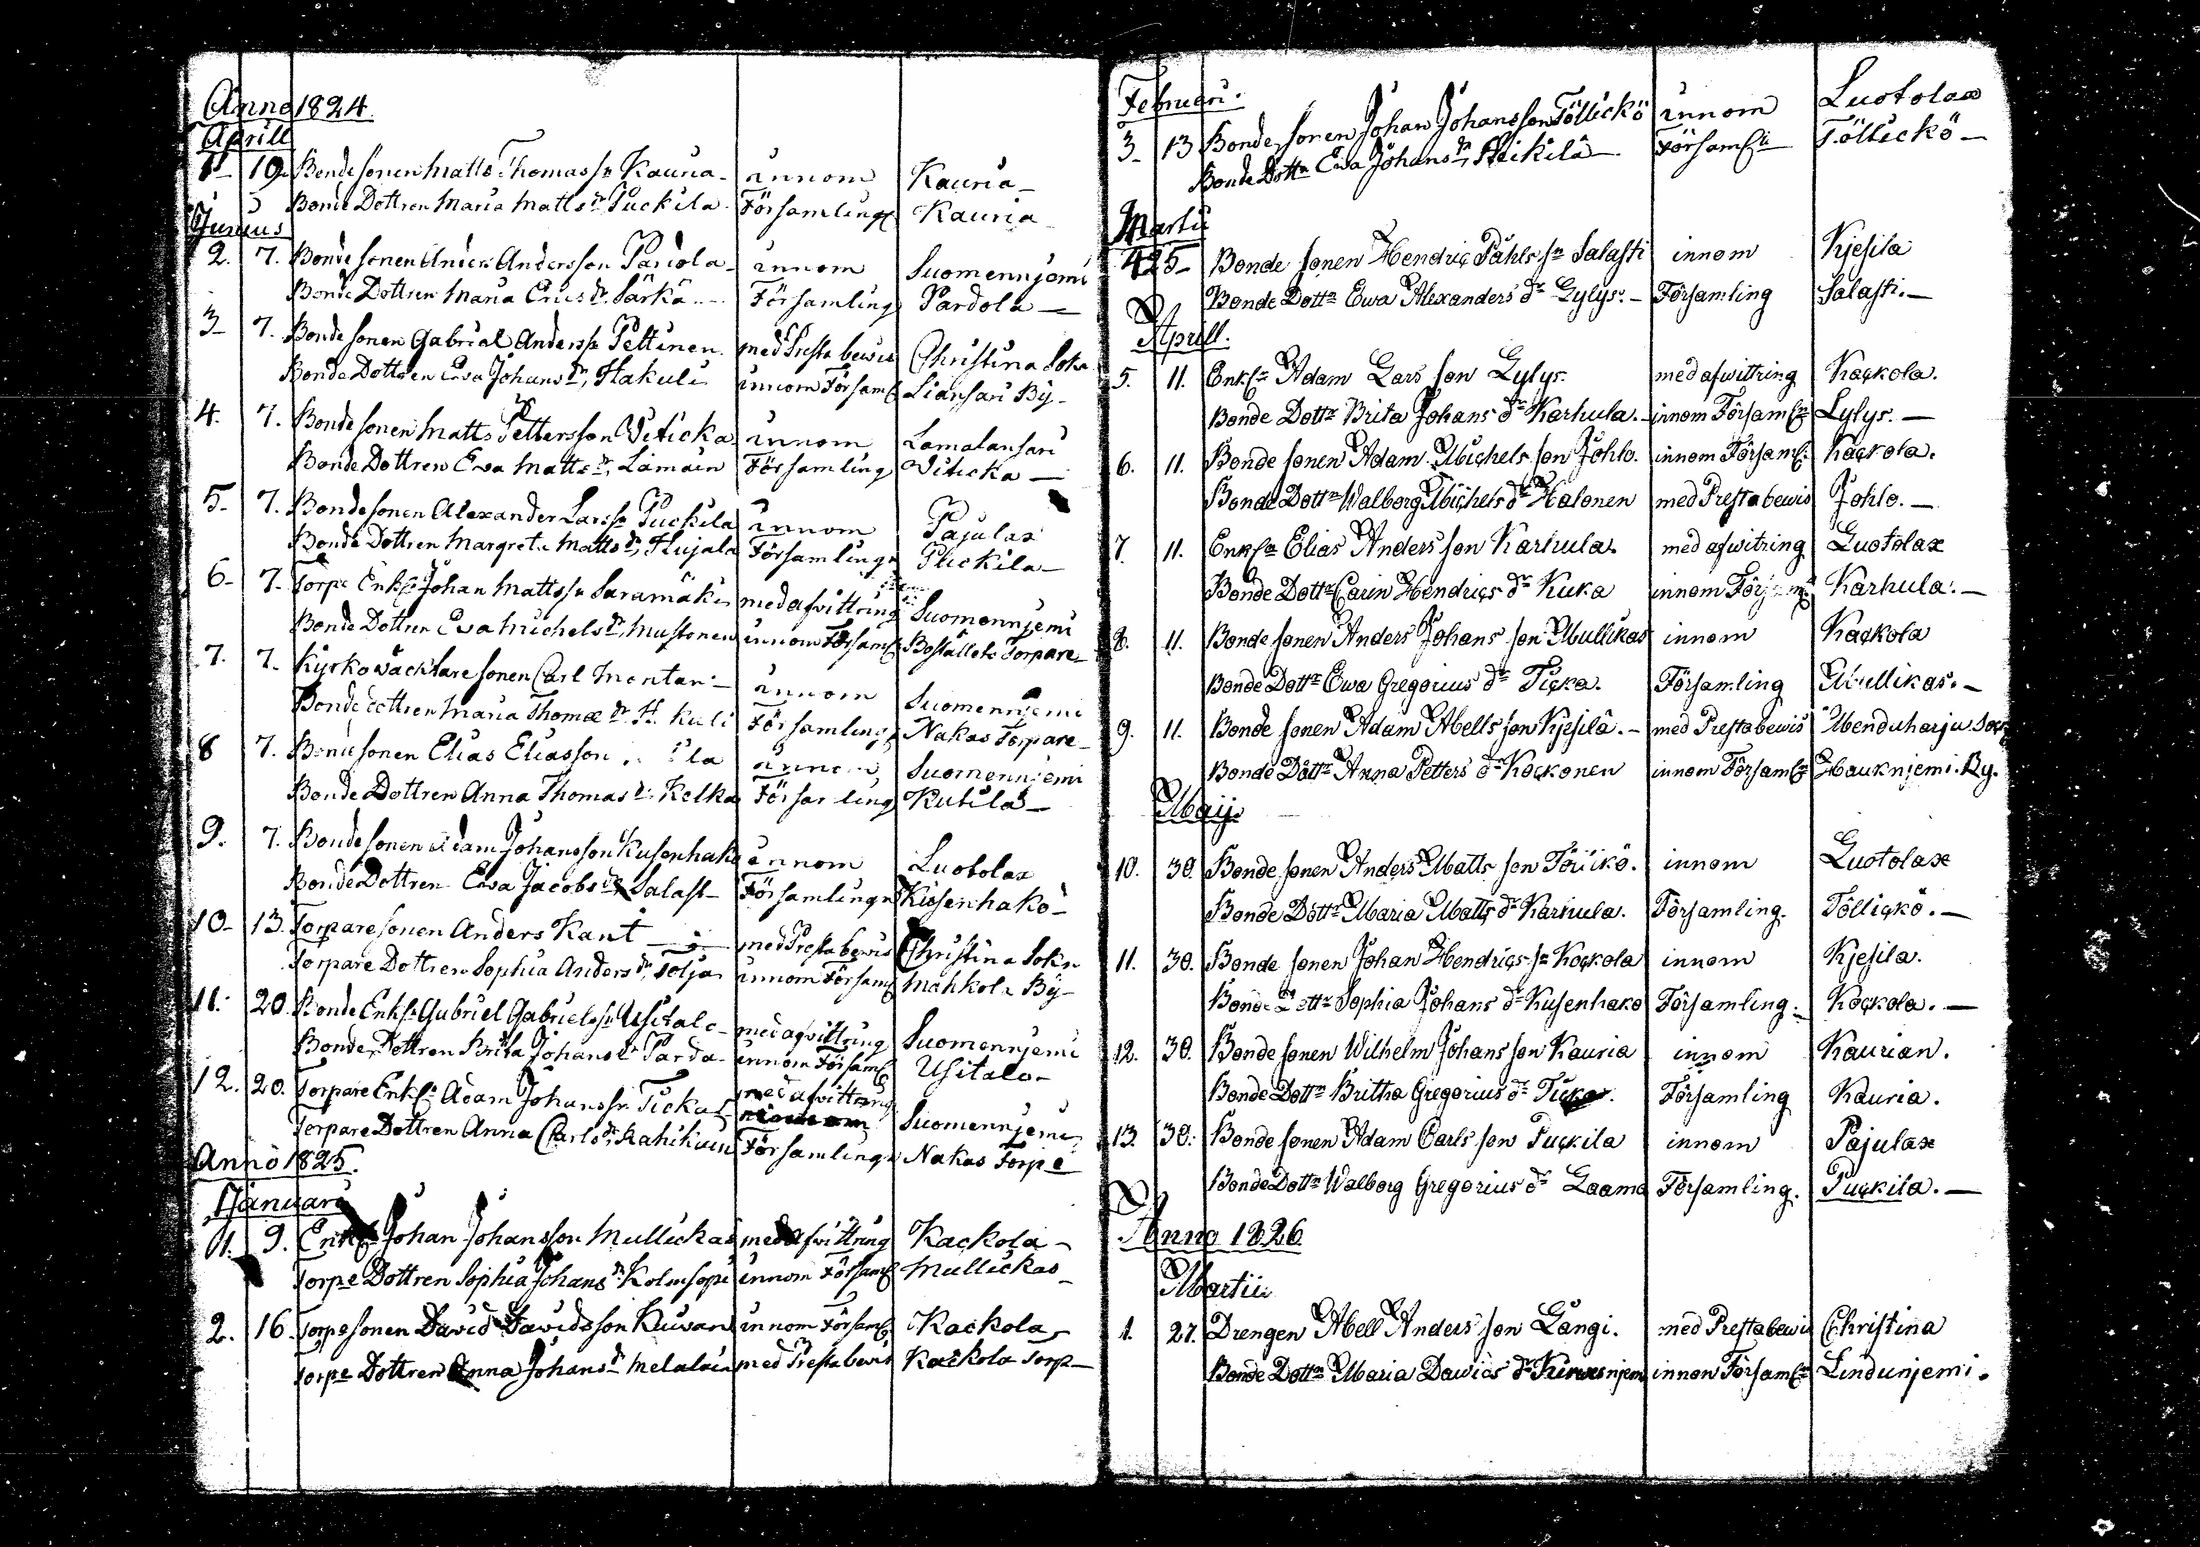 Anno 1824.
Aprill
1 19. Bonde sonen Matts Thomass sn Kauria innom Kauria
Bonde Dottren Maria Matts dr Puckila Församling Kauria
Junius
2. 7. Bonde sonen Anders Andersson Pardola innom Suomennjemi
Bonde Dottren Maria Erics dr Särkä Församling Pardola
3 7. Bonde sonen Gabriel Anderss sn Peltinen. med Presta bewis Christina Sokn
Bonde Dottren Ewa Johans dr Hakuli innom Församl Liansari By
4. 7. Bonde sonen Matts Pettersson Viticka innom Lamalansari
Bonde Dottren Ewa Matts dr Lämäin Församling Viticka
5 7. Bonde sonen Alexander Larss sn Puckila innom Pajulax
Bonde Dottren Margreta Matts dr Hujala Församling Puckila
6 7. Torpe Enkl Johan Mattss sn Saramäki med afvittring Suomennjemi
Bonde Dottren Ewa Michels dr Mustonen innom Församl Boställets Torpare
7. 7. Kyrkowäcktare sonen Carl Montan innom Suomennjemi
Bonde dottren Maria Thomæ dr Hakuli Församling Nakas Torpare
8 7. Bonde sonen Elias Eliasson innom Suomennjemi
Bonde Dottren Anna Thomas dr Kelka Församling Kutila
9. 7. Bonde sonen Adam Johansson Kusenhako innom Luotolax
Bonde Dottren Ewa Jacobs dr Salast Församling Kusenhako
10 13. Torpare sonen Anders Kant med Presta bewis Christina Sokn
Torpare Dottren Sophia Anders dr Toija innom Församl Mahkola By
11. 20. Bonde Enkl Gabriel Gabrielss sn Usitalo med afvittring Suomennjemi
Bonde Dottren Brita Johans dr Parda innom Församl Usitalo
12. 20. Torpare Enkl Adam Johanss sn Tickas med afvittring Suomennjemi
Torpare Dottren Anna Carls dr Kahikain Församling Nakas Torpe
Anno 1825.
Januari
1. 9. Enkl Johan Johansson Mullickas med afvittring Kackola
Torpe Dottren Sophia Johans dr Kolmsopi innom Församl Mullickas
2. 16. Torpe sonen David Davidsson Kuvan innom Församl Kackola
Torpe Dottren Anna Johans dr Melalain med Presta bewis Kackola Torp
Februari.
3 13 Bonde sonen Johan Johansson Töllickö innom Luotolax
Bonde Dottr Ewa Johans dr Heikilä Församl Töllickö
Martii
4 25 Bonde sonen Hendric Påhls sn Salasti innom Kjesila
Bonde Dottr Ewa Alexanders dr Gylys. Församling Salasti.
Aprill.
5. 11. Enkl Adam Lars son Lylys. med afwittring Kackola.
Bonde Dottr Brita Johans dr Karhula. innom Församl Lylys.
6. 11. Bonde sonen Adam Michels son Johlo. innom Församl Kackola.
Bonde Dottr Walborg Michels dr Halonen med Prestabewis Johlo.
7. 11. Enkl Elias Anders son Karhula. med afwitring Luotolax
Bonde Dottr Carin Hendrics dr Kuka innom Församl Karhula.
8. 11. Bonde sonen Anders Johans son Mullikas innom Kackola
Bonde Dottr Ewa Gregorius dr Ticka. Församling Mullikas.
9. 11. Bonde sonen Adam Abells son Kjesilä. med Prestabewis Menduharju Sock
Bonde Dottr Anna Petters dr Kockonen innom Församl Hauknjemi. By.
Maij.
10. 30. Bonde sonen Anders Matts son Töllikö. innom Luotolax
Bonde Dottr Maria Matts dr Karhula. Församling. Töllickö.
11. 30. Bonde sonen Johan Hendrics sn Kockola innom Kjesila.
Bonde Dottr Sophia Johans dr Kusenhako Församling. Kockola.
12. 30. Bonde sonen Wilhelm Johans son Kauria innom Kaurian.
Bonde Dottr Brittha Gregorius dr Ticka. Församling Kauria.
13. 30. Bonde sonen Adam Carls son Puckila innom Pajulax
Bonde Dottr Walborg Gregorius dr Laama Församling. Puckila.
Anno 1826
Martii
1. 27. Drengen Abell Anders son Långi. med Prestabewis Christina
Bonde Dottr Maria Dawids dr Kirwesnjemi innom Församl Lindunjemi.